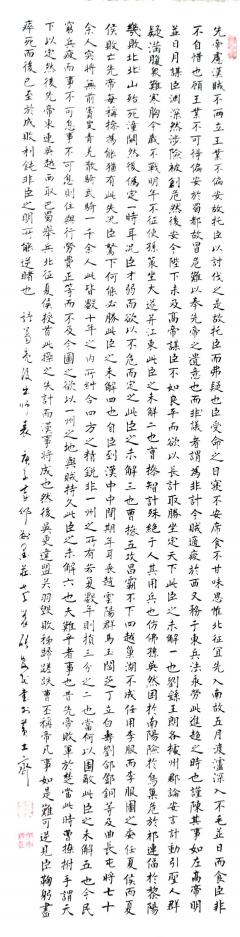 先帝慮漢賊不兩立王業不偏安故托臣以討伐之是故托臣而弗疑也臣受命之日寢不安席食不甘味思惟北征宜先入南故五月渡瀘深入不毛並日而食臣非
不自惜也顧王業不可得偏安於蜀都故冒危難以奉先帝之遺意也而非議者謂為非計今賊適疲於西又務于東兵法乘勞此進趨之時也謹陳其事如左高帝明
並日月謀臣淵深然涉險被創危然後安今陛下未及高帝謀臣不如良平而欲以長計取勝坐定天下此臣之未解一也劉繇王朗各據州郡論安言計動引聖人群
疑滿腹眾難塞胸今歲不戰明年不征使孫策坐大遂并江東此臣之未解二也曹操智計殊絕于人其用兵也仿佛孫吳然困於南陽險於烏巢危於祁連偪於黎陽
幾敗北山殆死潼關然後偽定一時耳況臣才弱而欲以不危而定之此臣之未解三也曹操五攻昌霸不下四越巢湖不成任用李服而李服圖之委任夏侯而夏
侯敗亡先帝每稱操為能猶有此失況臣駑下何能必勝此臣之未解四也自臣到漢中中間期年耳喪趙雲陽群馬玉閻芝丁立白壽劉郃鄧銅等及曲長屯將七十
余人突將無前賨叟青羌散騎武騎一千余人此皆數十年之內所糾合四方之精銳非一州之所有若復數年則損三分之二也當何以圖敵此臣之未解五也今民
窮兵疲而事不可息事不可息則住與行勞費正等而不及今圖之欲以一州之地與賊持久此臣之未解六也夫難平者事也昔先帝敗軍於楚當此時曹操拊手謂天
下以定然後先帝東連吳越西取巴蜀舉兵北征夏侯授首此操之失計而漢事將成也然後吳更違盟關羽毀敗秭歸蹉跌曹丕稱帝凡事如是難可逆見臣鞠躬盡
瘁死而後已至於成敗利鈍非臣之明所能逆睹也 諸葛亮後出師表 庚子